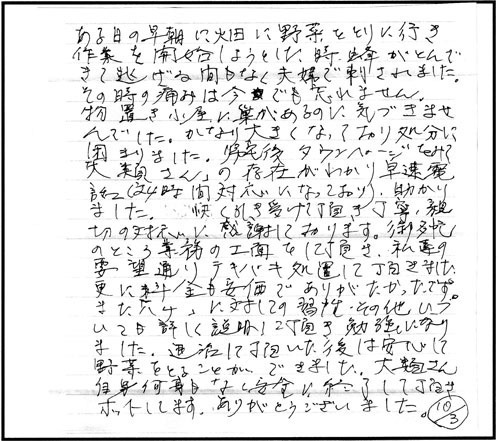 ある日の早朝に火田に野菜をとりに行き
作業を開始しようとした時、蜂がとんで
きて逃げる間もなく夫婦で刺されました。
その時の痛みは今でも忘れません。
物置き小屋に巣があるのに気づきませ
んでした。かなり大きくなっており処分に
困りました。 タウンページをみて
大類さんの存在がわかり早速電
話(24時間対応になっており)、助かり
ました。 快く引き受けて頂き丁寧、親
切の対応に感謝しております。御多忙
のところ業務の工面をして頂き、私達の
要望通りテキパキ処置して頂きました
更に料金も安価でありがたかったです。
また に対しての習性・その他につ
いても詳しく説明して頂き勉強になり
ました。退治して頂いた後は安心して
野菜をとることができました。大類さん
自身何事もなく安全に終了して頂き
ホットしてます。ありがとうございました。
10/3